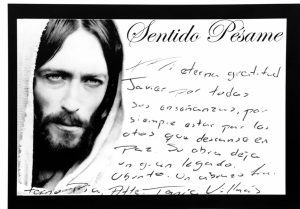 Sentido Pésame
Mi eterna gratitud
Javier por todas
sus enseñanzas, por
siempre estar por los
otros que descanse en
Paz su obra deja
un gran legado.
Ubento. Un abrazo fui.
Tania Villnis